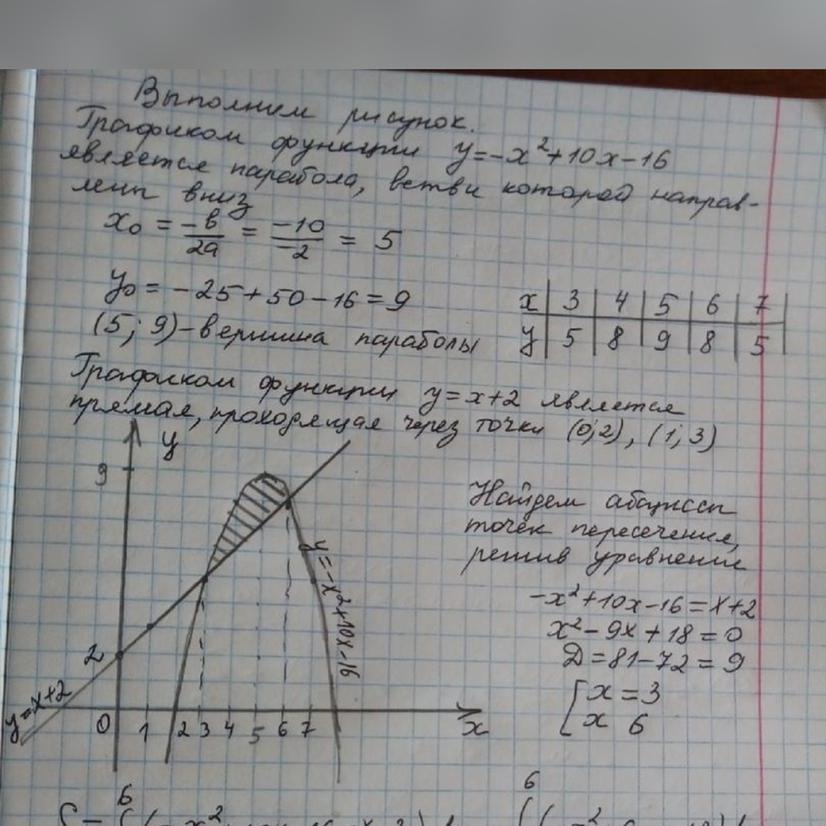 Выполним рисунок.
Графиком функции y=-x²+10x-16
является парабола, ветви которой направ-
лены вниз
x₀ = -b/2a = -10/-2 = 5
y₀ = -25+50-16=9
x | 3 | 4 | 5 | 6 | 7
(5; 9)-вершина параболы
y | 5 | 8 | 9 | 8 | 5
Графиком функции y=x+2 является
прямая, проходящая через точки (0;2), (1; 3)
y
9
2
0 1 2 3 4 5 6 7 x
y=x+2
y=-x²+10x-16
Найдем абсциссы
точек пересечения,
решив уравнение
-x²+10x-16=x+2
x²-9x+18=0
D=81-72=9
[x=3
x 6
6
6
S=